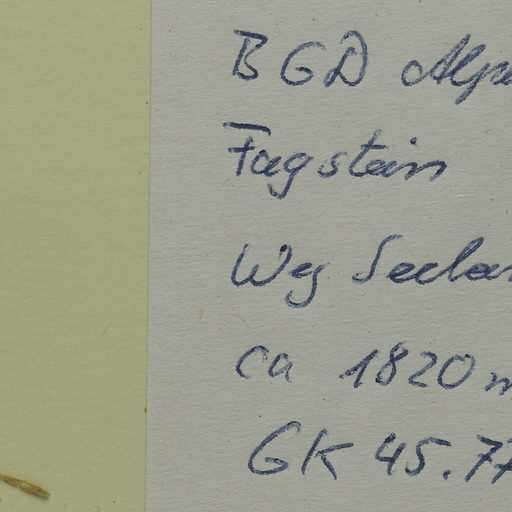 BGD Alp
Fagstein
Weg Seele
ca 1820 m
GK 45.77